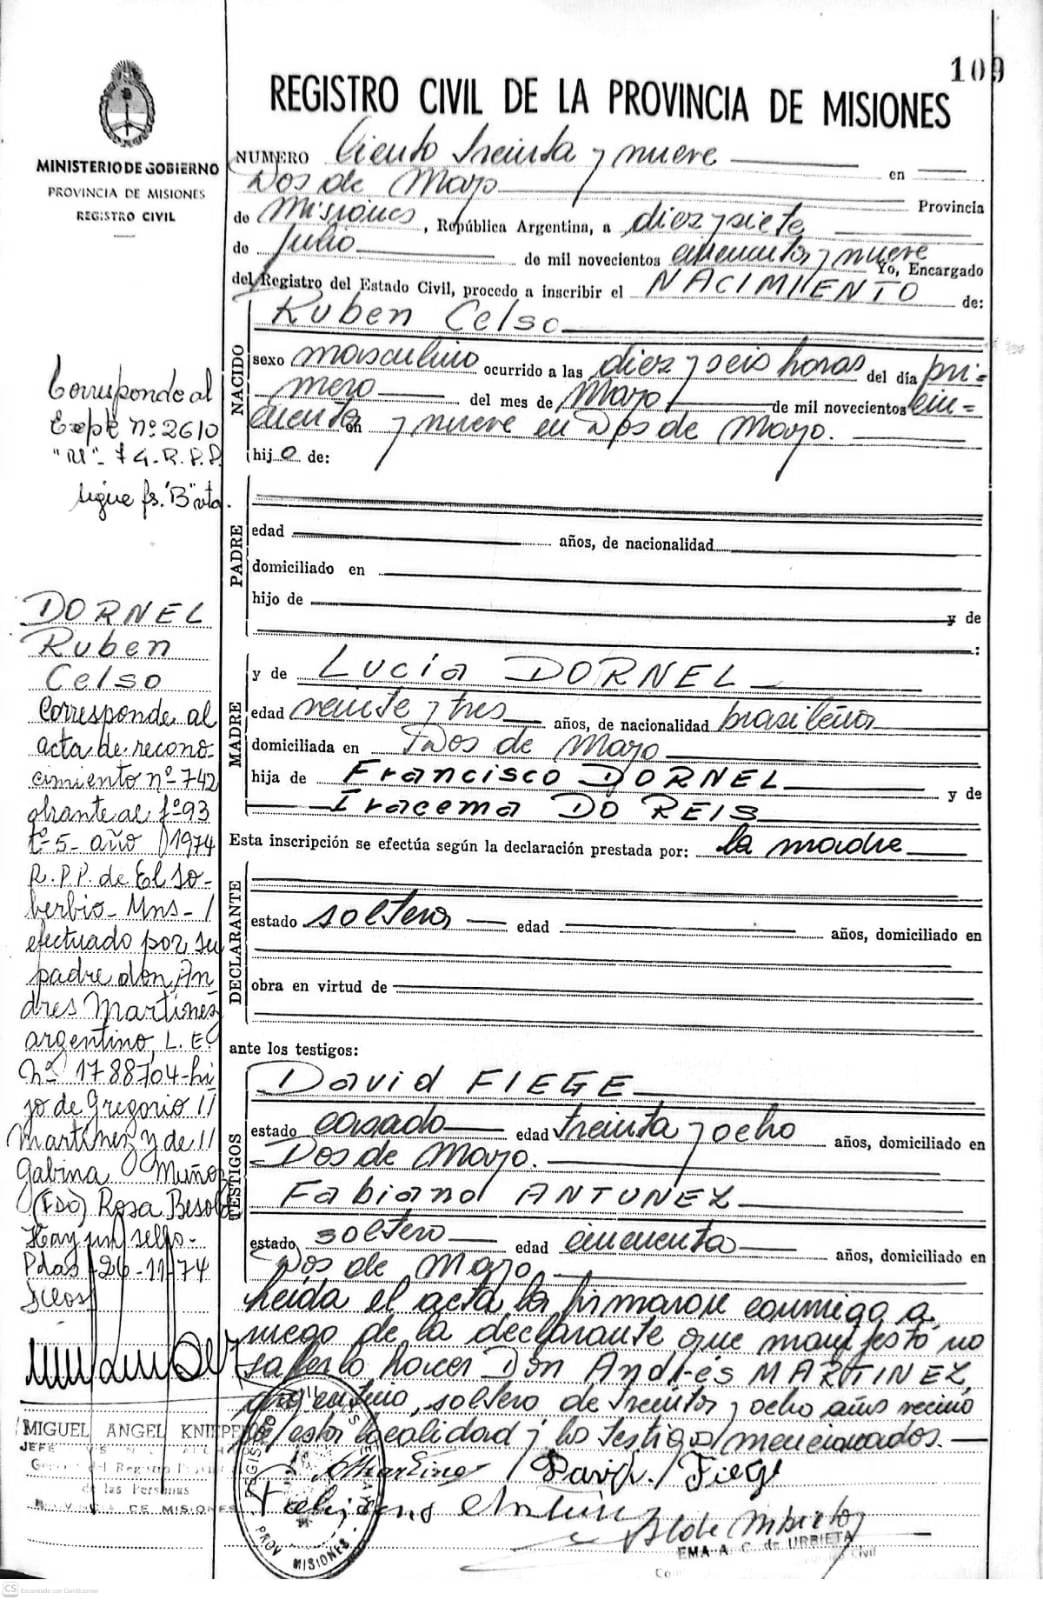 109
REGISTRO CIVIL DE LA PROVINCIA DE MISIONES
MINISTERIO DE GOBIERNO
PROVINCIA DE MISIONES
REGISTRO CIVIL
NUMERO Ciento treinta y nueve en
Dos de Mayo Provincia
de Misiones, República Argentina, a diez y siete
de Julio de mil novecientos cincuenta y nueve Yo, Encargado
del Registro del Estado Civil, procedo a inscribir el NACIMIENTO de:
NACIDO
Ruben Celso
sexo masculino ocurrido a las diez y seis horas del día pri-
mero del mes de Mayo de mil novecientos cin-
cuenta y nueve en Dos de Mayo.
hijo de:
Corresponde al
Expte nº 2610
sigue fs. "B" vta.
PADRE
edad años, de nacionalidad
domiciliado en
hijo de y de
:
MADRE
y de Lucía DORNEL
edad veinte y tres años, de nacionalidad brasileña
domiciliada en Dos de Mayo
hija de Francisco DORNEL y de
Iracema DO REIS
Esta inscripción se efectúa según la declaración prestada por: la madre
DECLARANTE
estado soltera edad años, domiciliado en
obra en virtud de
ante los testigos:
TESTIGOS
David FIEGE
estado casado edad treinta y ocho años, domiciliado en
Dos de Mayo.
Fabiano ANTUNEZ
estado soltero edad cincuenta años, domiciliado en
Dos de Mayo
Leida el acta la firmaron conmigo a
ruego de la declarante que manifestó no
saberlo hacer Don Andrés MARTINEZ,
argentino, soltero de treinta y ocho años vecino
de esta localidad y los testigos mencionados.
DORNEL
Ruben
Celso
Corresponde al
acta de recono
cimiento nº 742
obrante al fº 93
tº 5- año 1974
R.P.P. de El So-
berbio- Mns-
efectuado por su
padre don An
dres Martinez
argentino, L.E
Nº 1788704-hi
jo de Gregorio
Martinez y de
Gabina Muñoz
(FDO) Rosa Besold
Hay un sello-
Pdas 26-11-74
MIGUEL ANGEL
JEFE
de las Personas
PROVINCIA DE MISIONES
David Fiege
PROV MISIONES
EMA A. C. de URBIETA
CS Escaneado con CamScanner